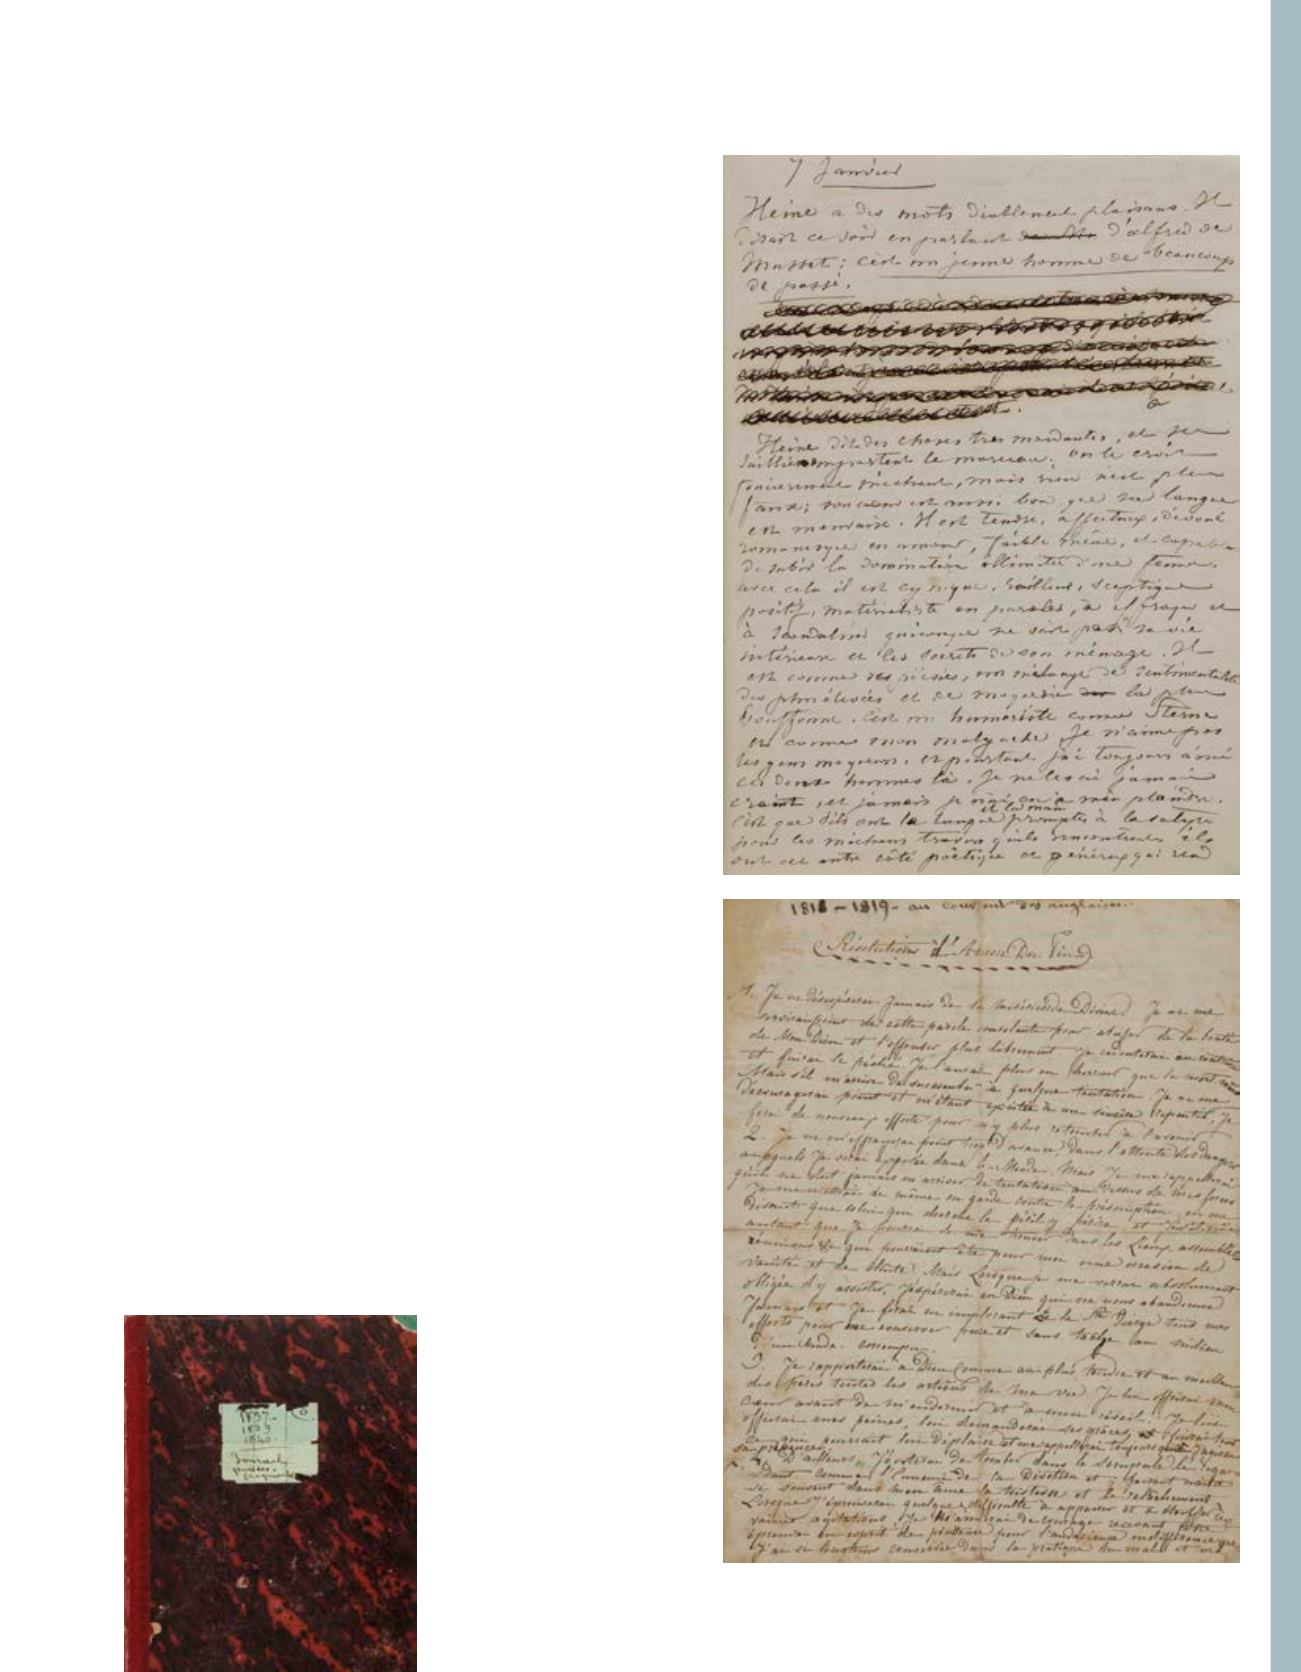 7 Janvier
Heine a des mots diablement plaisans. Il
disait ce soir en parlant d'alfred de
Musset : c'est un jeune homme de beaucoup
de passé.
Heine dit des choses très mordantes, et ses
saillies emportent le morceau. on le croit
foncièrement méchant, mais rien n'est plus
faux ; son cœur est aussi bon que sa langue
est mauvaise. Il est tendre, affectueux, dévoué
romanesque en amour, faible même, et capable
de subir la domination illimitée d'une femme.
avec cela il est cynique, railleur, sceptique
positif, matérialiste en paroles, à effrayer et
à scandaliser quiconque ne sait pas sa vie
intérieure et les secrets de son ménage. Il
est comme ses poésies, un mélange de sentimentalité
des plus élevées et de moquerie la plus
bouffonne. c'est un humoriste comme Sterne
et comme mon malgache. Je n'aime pas
les gens moqueurs, et pourtant j'ai toujours aimé
ces deux hommes là. Je ne les ai jamais
craint, et jamais je n'ai eu à m'en plaindre.
c'est que s'ils ont la langue et la main promptes à la satyre
pour les méchans travers qu'ils rencontrent ils
ont cet autre côté poétique et généreux qui rend
1818 - 1819 - au couvent des anglaises.
Résolutions d'Aurore Dupin
1. Je ne désespérerai Jamais de la miséricorde Divine. Je ne me
servirai point de cette parole consolante pour abuser de la bonté
de Mon Dieu et l'offenser plus librement. Je
et fuirai le péché. Je l'aurai plus en horreur que la mort
Mais s'il m'arrive de succomber à quelque tentation. Je ne me
Découragerai point et m'étant excitée à une sincère repentir, Je
ferai de nouveaux efforts pour n'y plus retomber à l'avenir
2. Je ne m'effrayerai point trop d'avance, dans l'attente des dangers
auxquels Je serai exposée dans le Monde. Mais Je me rappellerai
qu'il ne doit jamais m'arriver de tentation au dessus de mes forces
Je me mettrai de même en garde contre la présomption en me
disant que celui qui cherche le péril y périra et
autant que Je pourrai de me trouver dans les Lieux, assemblées
réunions &c qui pourraient être pour moi une occasion de
vanité et de Mais Lorsque je me verrai absolument
obligée d'y assister, J'espérerai en Dieu qui ne nous abandonne
Jamais et Je ferai en implorant la Ste Vierge tous mes
efforts pour me conserver pure et sans tache au milieu
d'un Monde corrompu.
3. Je rapporterai à Dieu comme au plus tendre et au meilleur
des Pères toutes les actions de ma vie. Je lui offrirai mon
cœur avant de m'endormir et à mon réveil. Je lui
offrirai mes peines, lui demanderai ses grâces, et fuirai tout
ce qui pourrait lui déplaire et me rappellerai toujours que J'agis en
sa présence.
D'ailleurs, J'éviterai de tomber dans le scrupule le
comme l'Ennemi de la Dévotion et faisant naître
se souvent dans mon âme la tristesse et le relâchement
Lorsque J'éprouverai quelque difficulté à appaiser et à étouffer ces
vaines agitations, Je m'armerai de courage
épreuve en esprit de pénitence pour l'audacieuse indifférence que
J'ai si longtems conservée dans la pratique du mal et
1837-
1839
1840.
Journal
pensées
fragments